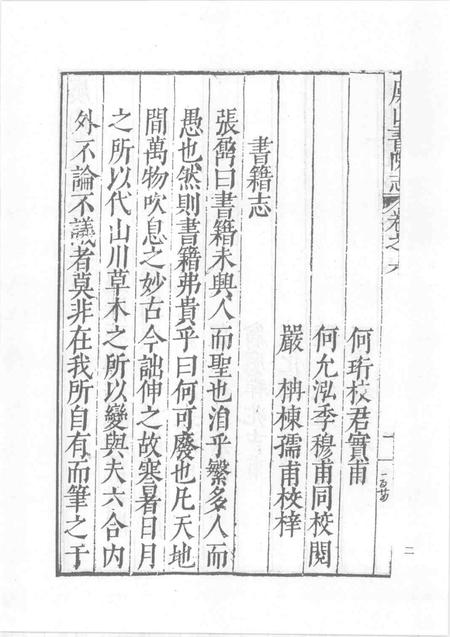 山書院志 卷之六
二
何珩校君實甫
何允泓季穆甫同校閱
嚴柟棟孺甫校梓
書籍志
張鼐曰書籍未興人而聖也洎乎繁多人而
愚也然則書籍弗貴乎曰何可廢也凡天地
間萬物吹息之妙古今詘伸之故寒暑日月
之所以代山川草木之所以變與夫六合內
外不論不議者莫非在我所自有而筆之于